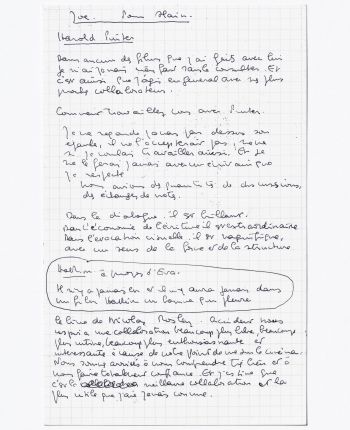 Joe. Pour Alain.
Harold Pinter
Dans aucun des films que j'ai faits avec lui
je n'ai jamais rien fait sans le consulter. Et
c'est aussi que j'agis en général avec mes plus
proches collaborateurs.
Comment travaillez vous avec Pinter.
Je ne regarde jamais par dessus son
épaule, il ne l'accepterait pas, même
si je voulais travailler ainsi. Et je
ne le ferai jamais avec un écrivain que
je respecte.
Nous avions des quantités de discussions,
des échanges de notes.
Dans le dialogue, il est brillant.
Dans l'économie de l'écriture il est extraordinaire
Dans l'évocation visuelle, il est magnifique,
avec un sens de la force et de la structure
à propos d'Eva.
Il n'y a jamais eu et il n'y aura jamais dans
un film un homme qui pleure
le livre de Nicolas Mosley. Accident nous
inspira une collaboration beaucoup plus libre, beaucoup
plus intime, beaucoup plus enthousiasmante et
intéressante à cause de notre point de vue sur le cinéma.
Nous sommes arrivés à nous comprendre très bien et à
nous faire totalement confiance. Et j'estime que
c'est la meilleure collaboration et la
plus utile que j'aie jamais connue.